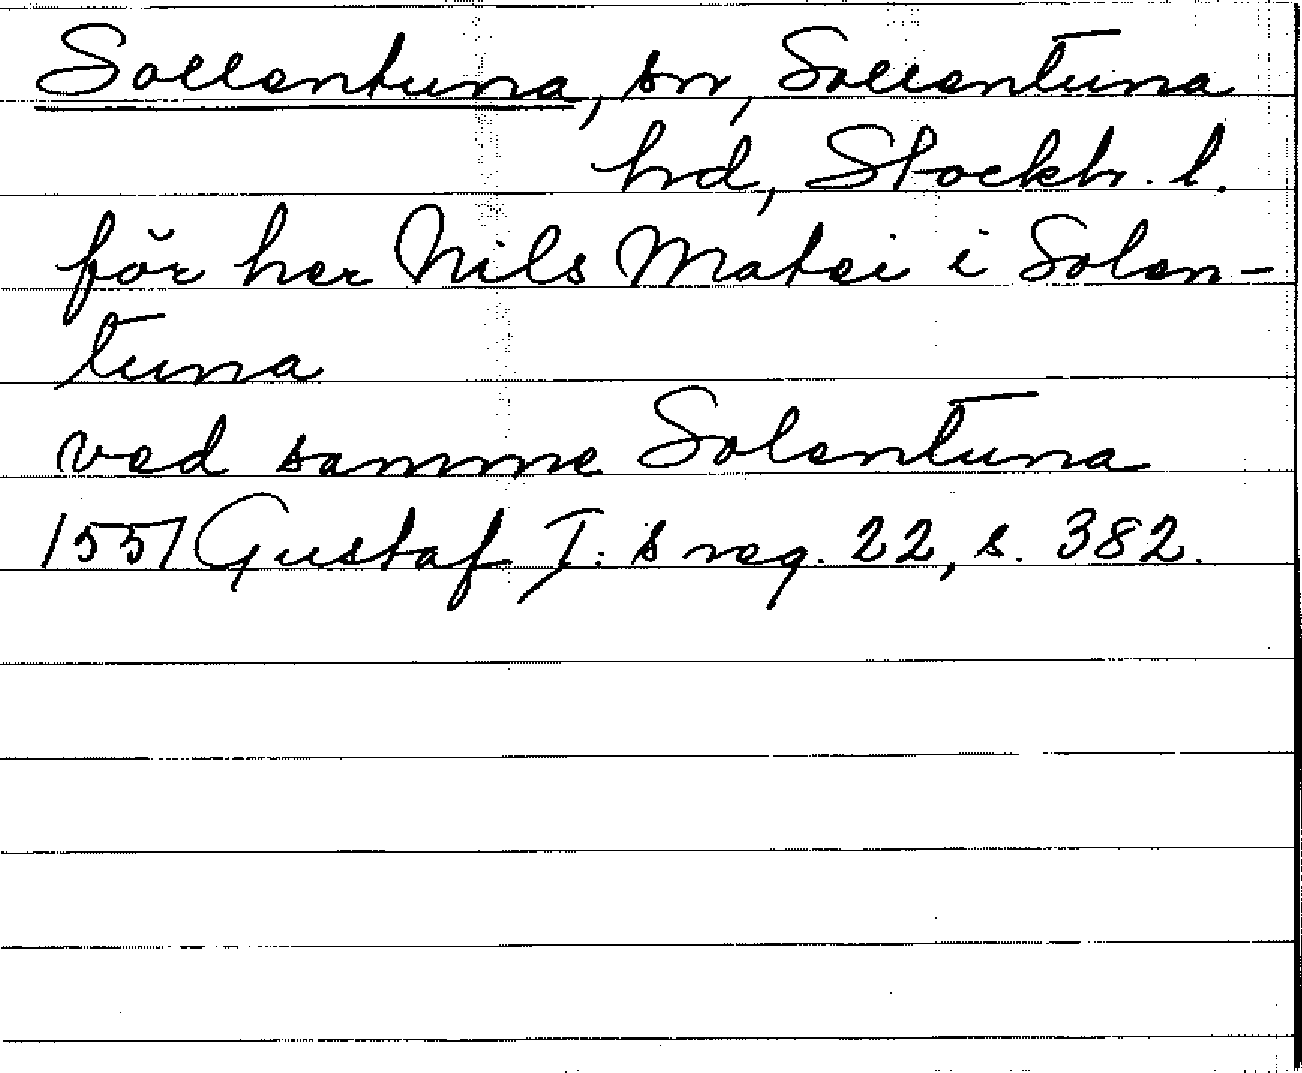 Sollentuna, sn, Sollentuna
hd, Stockh. l.
för her Nils Matei i Solen-
tuna
ved samme Solentuna
1551 Gustaf I:s reg. 22, s. 382.